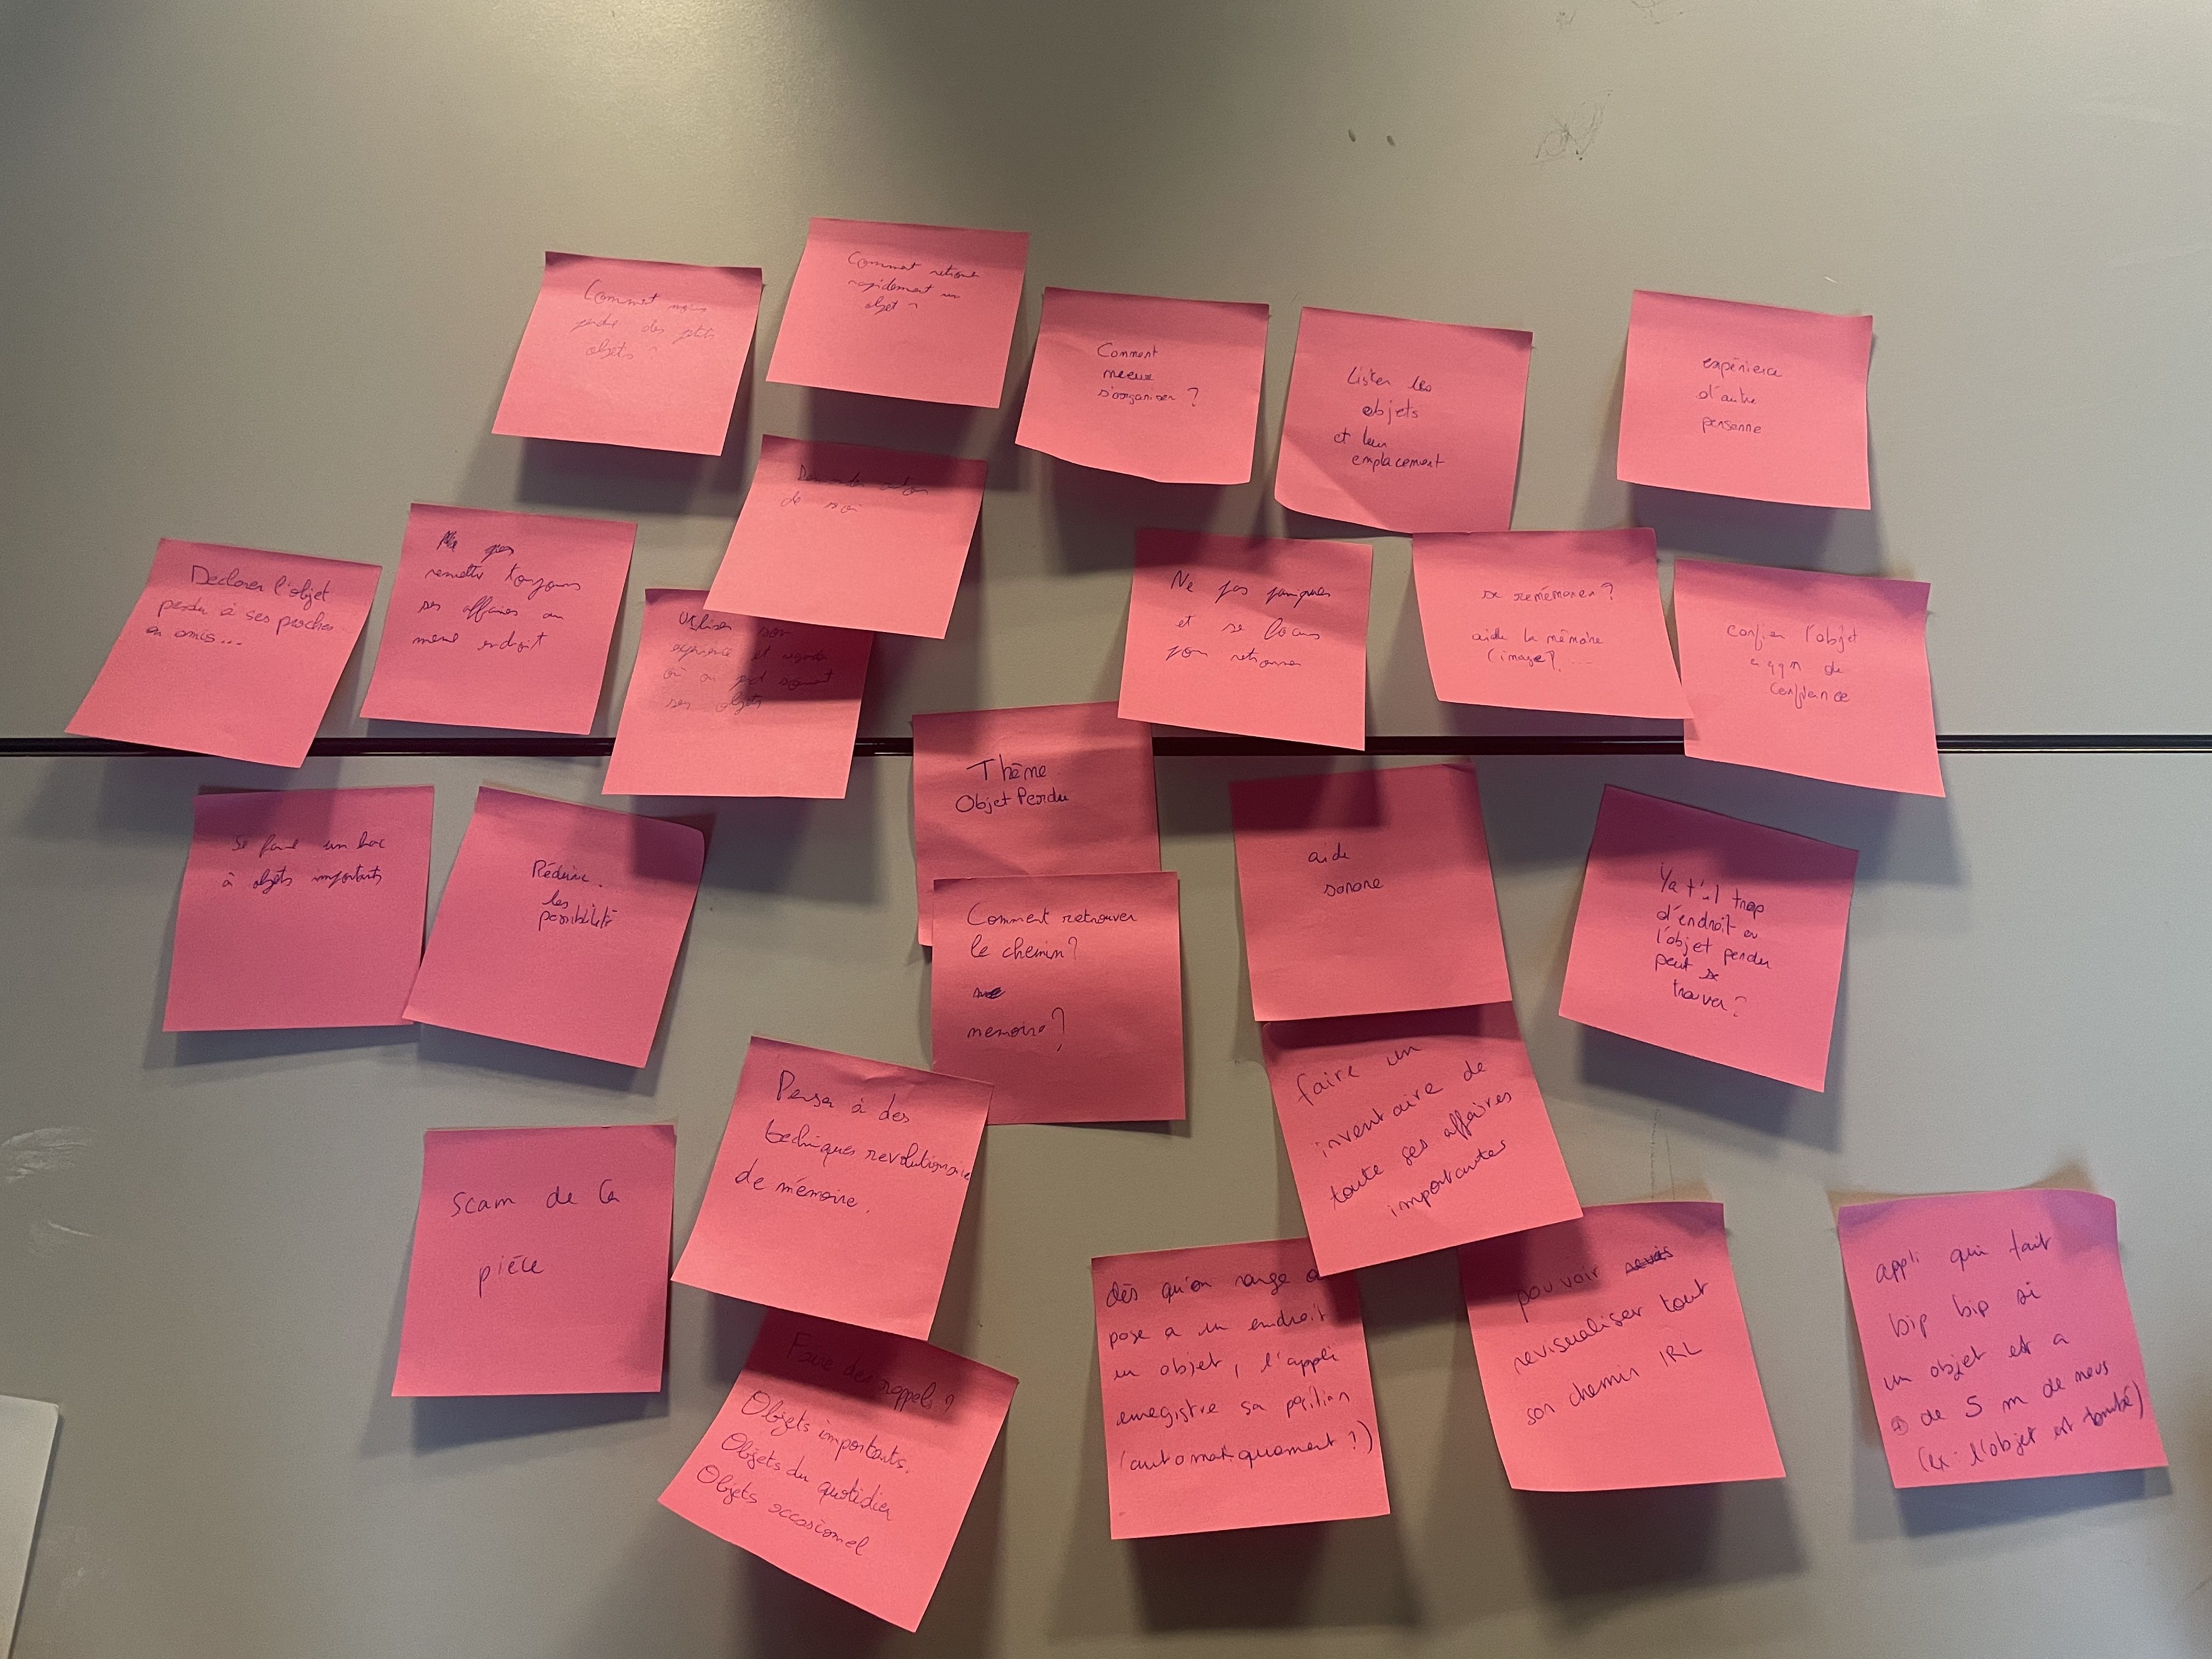 Comment
perdre des petits
objets ?
Comment retrouver
rapidement un
objet ?
Comment
mieux
s'organiser ?
Lister les
objets
et leur
emplacement
expérience
d'autre
personne
Declarer l'objet
perdu à ses proches
ou amis...
remettre toujours
ses affaires au
meme endroit
de soi
Utiliser son
experience et regarder
où on perd souvent
ses objets
Ne pas paniquer
et se focus
pour retrouver
se remémorer ?
aide la mémoire
(image?, ...
confier l'objet
a qqn de
confiance
Thème
Objet Perdu
Se faire un bac
à objets importants
Réduire
les
possibilité
Comment retrouver
le chemin ?
memoire ?
aide
sonore
Ya t'il trop
d'endroit ou
l'objet perdu
peut se
trouver ?
Penser à des
techniques revolutionnaire
de mémoire.
faire un
inventaire de
toute ses affaires
importantes
scam de la
pièce
Faire des rappels ?
Objets importants.
Objets du quotidien
Objets occasionnel
dès qu'on range ou
pose a un endroit
un objet, l'appli
enregistre sa position
(automatiquement ?)
pouvoir
revisualiser tout
son chemin IRL
appli qui fait
bip bip si
un objet est a
+ de 5 m de nous
(ex : l'objet est tombé)